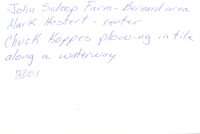 John Schoep Farm - Bernard area
Mark Hostert - renter
Chuck Koppes plowing in tile
along a waterway
2001